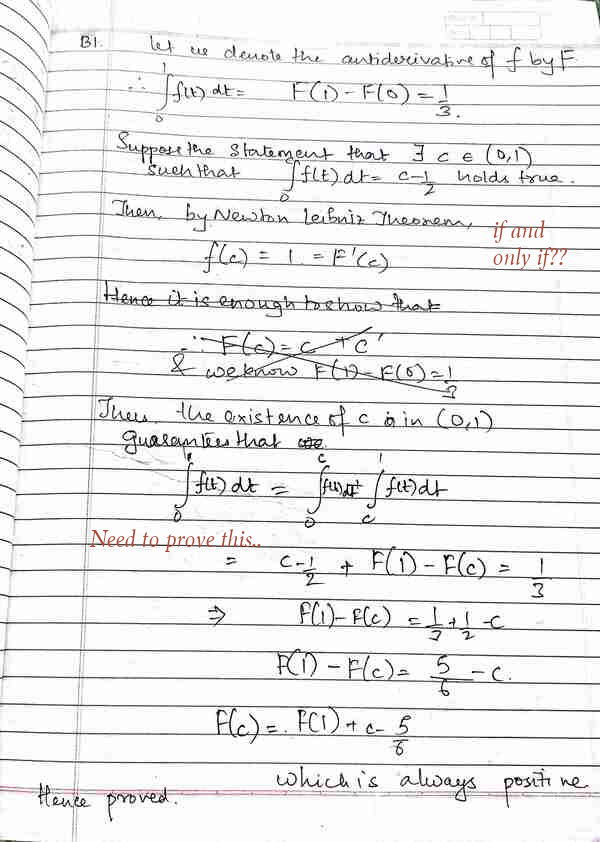 B1. let us denote the antiderivative of f by F
∴ ∫₀¹ f(t) dt = F(1) - F(0) = 1/3.
Suppose the statement that ∃ c ∈ (0,1)
such that ∫₀ f(t) dt = c - 1/2 holds true.
Then, by Newton Leibniz Theorem,
if and
only if??
f(c) = 1 = F'(c)
Hence it is enough to show that
∵ F(c) = c + c'
& we know F(1) - F(0) = 1/3
Then the existence of c in (0,1)
guarantees that
∫₀¹ f(t) dt = ∫₀ᶜ f(t) dt + ∫_c¹ f(t) dt
Need to prove this..
= c - 1/2 + F(1) - F(c) = 1/3
⇒ F(1) - F(c) = 1/3 + 1/2 - c
F(1) - F(c) = 5/6 - c.
F(c) = F(1) + c - 5/6
which is always positive
Hence proved.